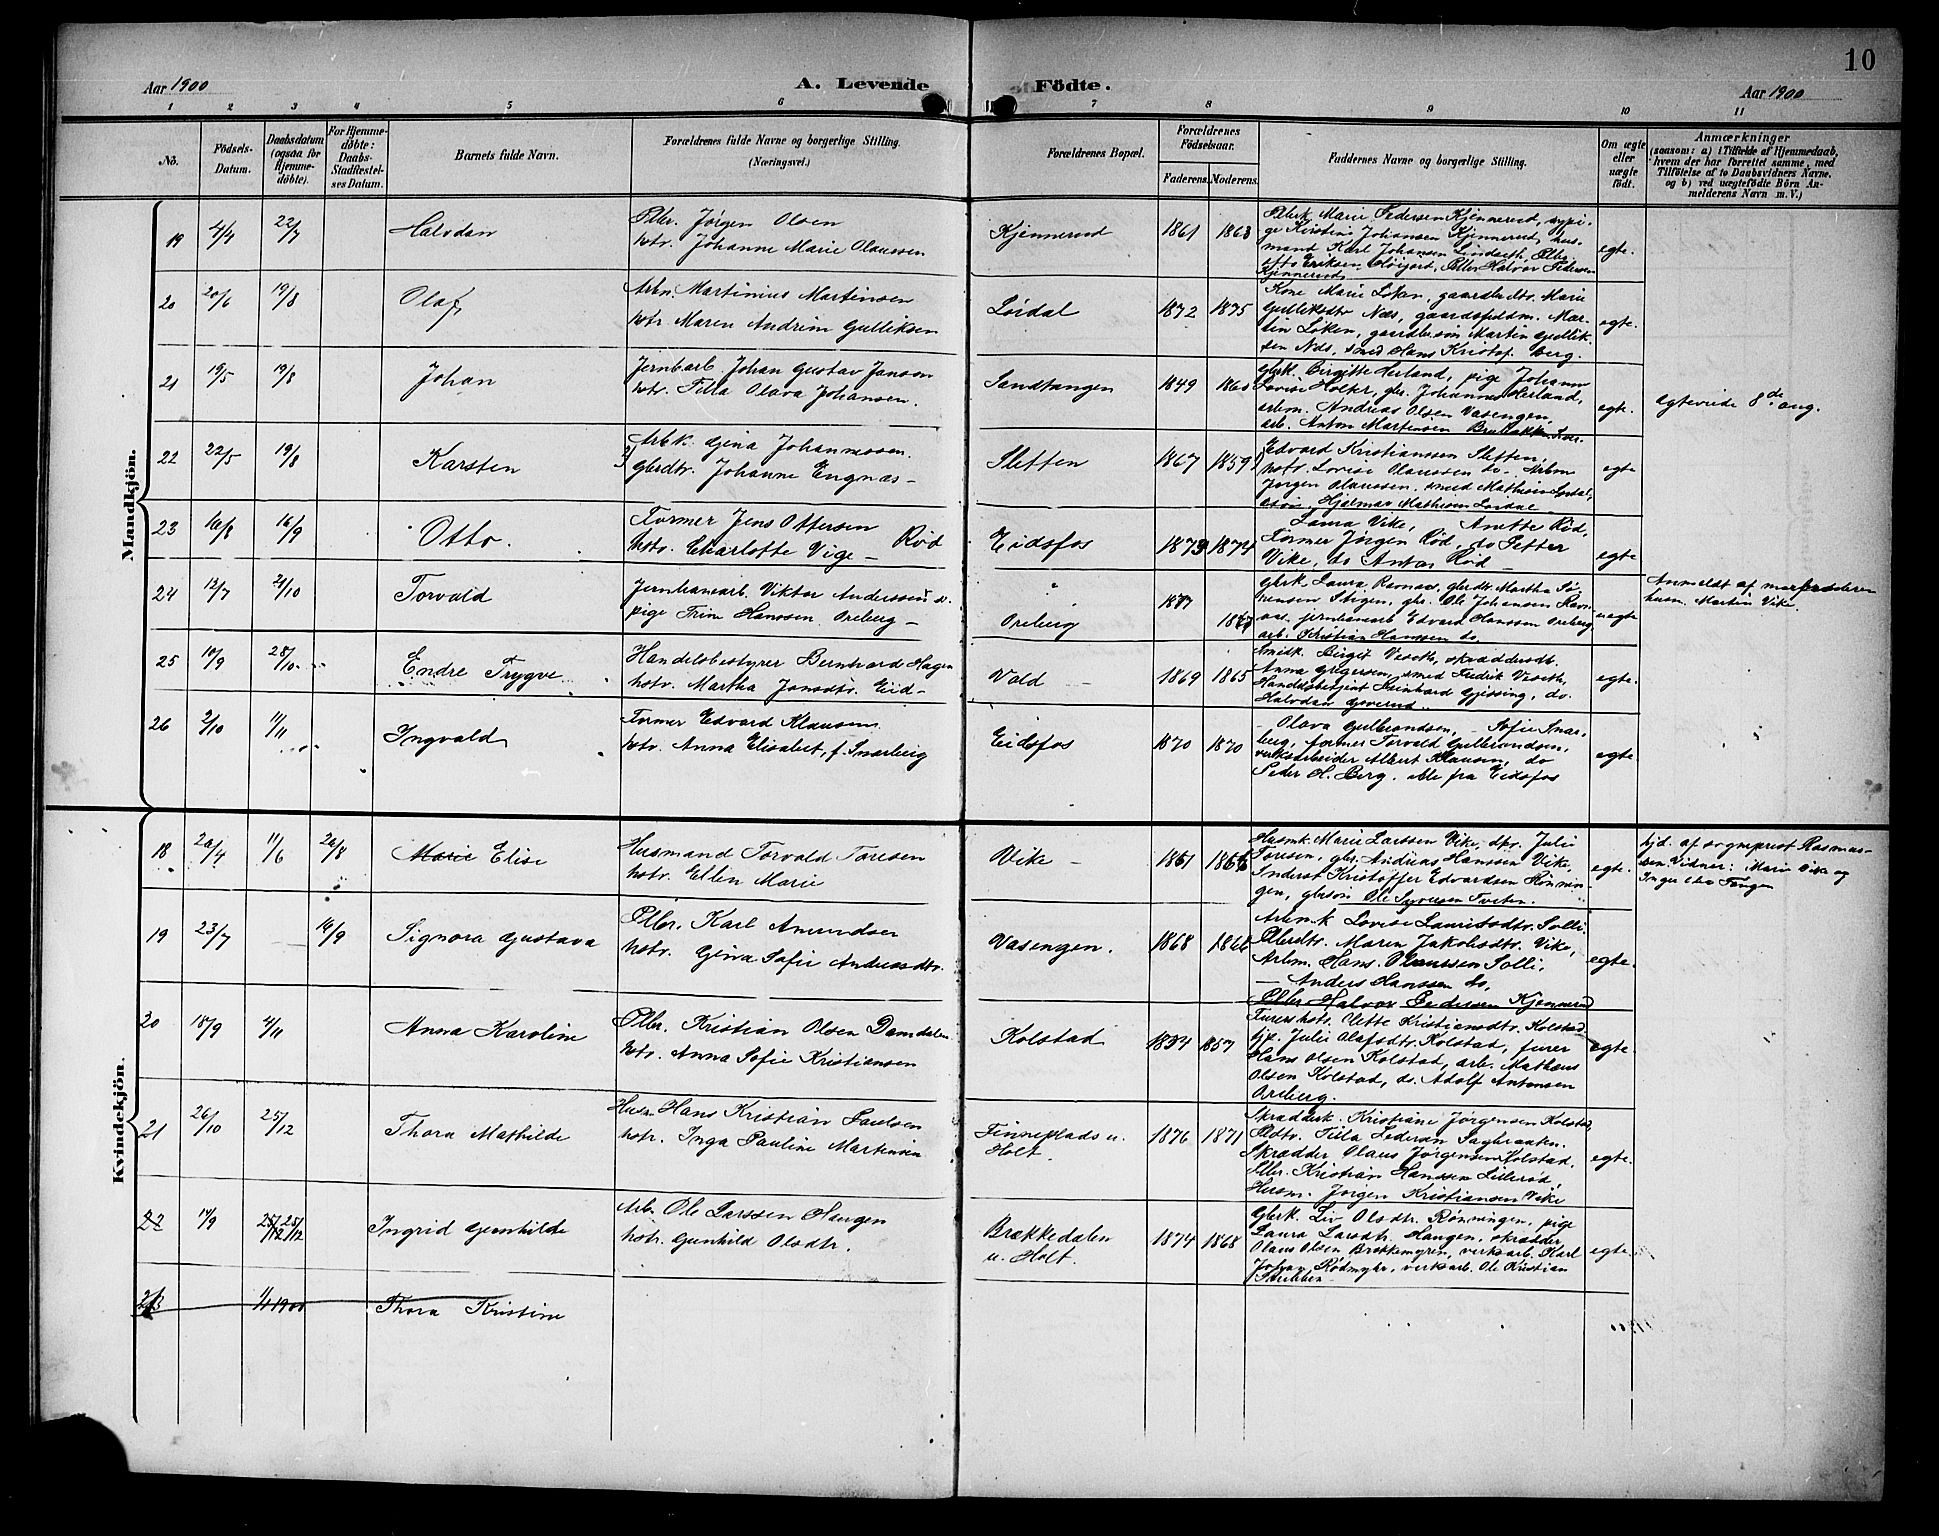 10
Aar 1900
A. Levende Födte.
Aar 1900
1 2 3 4 5 6 7 8 9 10 11
No.
Födsels-
Datum.
Daabsdatum
(ogsaa for
Hjemme-
døbte).
For Hjemme-
döbte:
Daabs-
Stadfæstel-
ses Datum.
Barnets fulde Navn.
Forældrenes fulde Navne og borgerlige Stilling.
(Næringsvei.)
Forældrenes Bopæl.
Forældrenes
Födselsaar.
Faderens. Moderens.
Faddernes Navne og borgerlige Stilling.
Om ægte
eller
uægte
födt.
Anmærkninger
(saasom: a) i Tilfælde af Hjemmedaab,
hvem der har forrettet samme, med
Tilföielse af to Daabsvidners Navne,
og b) ved uægtefödte Börn An-
melderens Navn m. V.)
Mandkjön.
19 4/4 22/7 Halvdan
Pllbr. Jörgen Olsen
hstr. Johanne Marie Olaussen
Kjennerud 1861 1863
Marie Pedersen Kjennerud,
Kristine Johansen Kjennerud, hus-
mand Karl Johansen
Eriksen Pllbr Halvor Pedersen
Kjennerud
egte.
20 20/6 19/8 Olaf
Arbm. Martinius Martinsen
hstr Maren Andrine Gulliksen
Lördal 1872 1875
Kone Marie Löken, gaardbrdtr. Marie
Gulliksdtr Næs, Mar-
tin Löken, gaardbrsön Martin Gullik-
sen Næs, smed Hans Kristof. Berg.
egte.
21 19/5 19/8 Johan
Jernbarb. Johan Gustav Janson
hstr. Tilla Olava Johansen.
Sandtangen 1849 1860
gbrk. Birgitte Herland, pige Johanne
Lovise Holter, gbr. Johannes Herland,
arbm. Andreas Olsen Vasengen,
arb. Anton Martinsen
egte.
egteviede 8de aug.
22 22/5 19/8 Karsten
Arbk. Gina Johannessen.
gbrdtr. Johanne Engnæs -
Sletten 1867 1859
Edvard Kristianssen Sletten,
hstr. Lovise Olaussen do - Arbm
Jörgen Olaussen. smed Mathisen Lördal,
Hjalmar Mathisen Lördal
egte
23 10/8 16/9 Otto.
Former Jens Ottersen Röd
hstr. Charlotte Vige -
Eidsfos 1873 1874
Laura Vike, Anette Röd,
Former Jörgen Röd, do Petter
Vike, do Anton Röd -
egte
24 12/7 21/10 Torvald
Jernbanearb. Viktor Anderssen
pige Trine Hanssen Oreberg -
"
Oreberg
1877
gbrk. Laura Ravnaas, gbrdtr. Martha Sö-
rensen Stigen, gbr. Ole Johansen Ravn-
aas, jernbanearb Edvard Hanssen Oreberg,
arb. Kristian Hanssen do.
uegte
Anmeldt af
husm. Martin Vike.
25 10/9 28/10 Endre Trygve
Handelsbestyrer Bernhard Hagen
hstr. Martha Jonsdtr. Eid -
Vold - 1869 1865
Smedk. Birgit Veseth, skrædderdt.
Anna Gregersen, smed Fredrik Veseth,
Handelsbetjent Reinhard Gjessing, do.
Halvdan Gjverud
egte.
26 2/10 11/11 Ingvald
Former Edvard Klausen
hstr. Anna Elisabet, f. Snarberg
Eidsfos 1870 1870
- Olava Gulbrandsen, - Sofie Snar-
berg, former Torvald Gulbrandsen,
verksarbeider Albert Klausen, do
Peder H. Berg. alle fra Eidsfos
egte.
Kvindekjön.
18 20/4 11/6 26/8 Marie Elise
Husmand Torvald Toresen
hstr. Ellen Marie
Vike - 1861 1866
Husmk. Marie Larssen Vike, Julie
Toresen, gbr. Andreas Hanssen Vike,
Inderst Kristoffer Edvardsen Rönnin-
gen, gbrsön Ole Syversen Tveten.
egte.
hjd. af sogneprest Rasmus-
sen. Vidner: Marie Vike og
Inger Fangen
19 23/7 16/9 Signora Gustava
Pllbr. Karl Amundsen
hstr. Gina Sofie Andreasdtr.
Vasengen. 1868 1866
Arbm.k Lovise Lauritsdtr. Solli,
Pllbrdtr. Maren Jakobsdtr. Vike,
Arbm. Hans Olaussen Solli,
- Anders Hanssen do,
Pllbr Halvor Pedersen Kjennerud
egte.
20 18/9 4/11 Anna Karoline
Pllbr. Kristian Olsen Damdalen
hstr. Anna Sofie Kristiansen
Kolstad 1834 1857
Furershstr. Mette Kristiansdtr. Kolstad
hjp. Julie Olafsdtr. Kolstad, furer
Hans Olsen Kolstad, arb. Mathæus
Olsen Kolstad, do. Adolf Antonsen
Oreberg.
egte.
21 26/10 25/12 Thora Mathilde
Husm. Hans Kristian Paulsen
hstr. Inga Pauline Martinsen
Finneplads u.
Holt.
1876 1871
Skrædderk. Kristiane Jörgensen Kolstad,
Tilla Pedersen Sagbraaten.
Skrædder Olaus Jörgensen Kolstad,
Pllbr. Kristian Hanssen Lilleröd,
Husm. Jörgen Kristiansen Vike
egte.
22 14/9 25/12 25/12 Ingrid Gunhilde
Arb. Ole Larssen Haugen
hstr. Gunhild Olsdtr.
Brækkedalen
u. Holt.
1874 1868
Gbrk. Liv Olsdtr. Rönningen, pige
Laura Larsdtr. Haugen, skrædder
Olaus Olsen Brækkemyren, verksarb. Karl
Johan Rödmyhr, verksarb. Ole Kristian
Stubben
egte.
23 1/1 1900 Thora Kristine